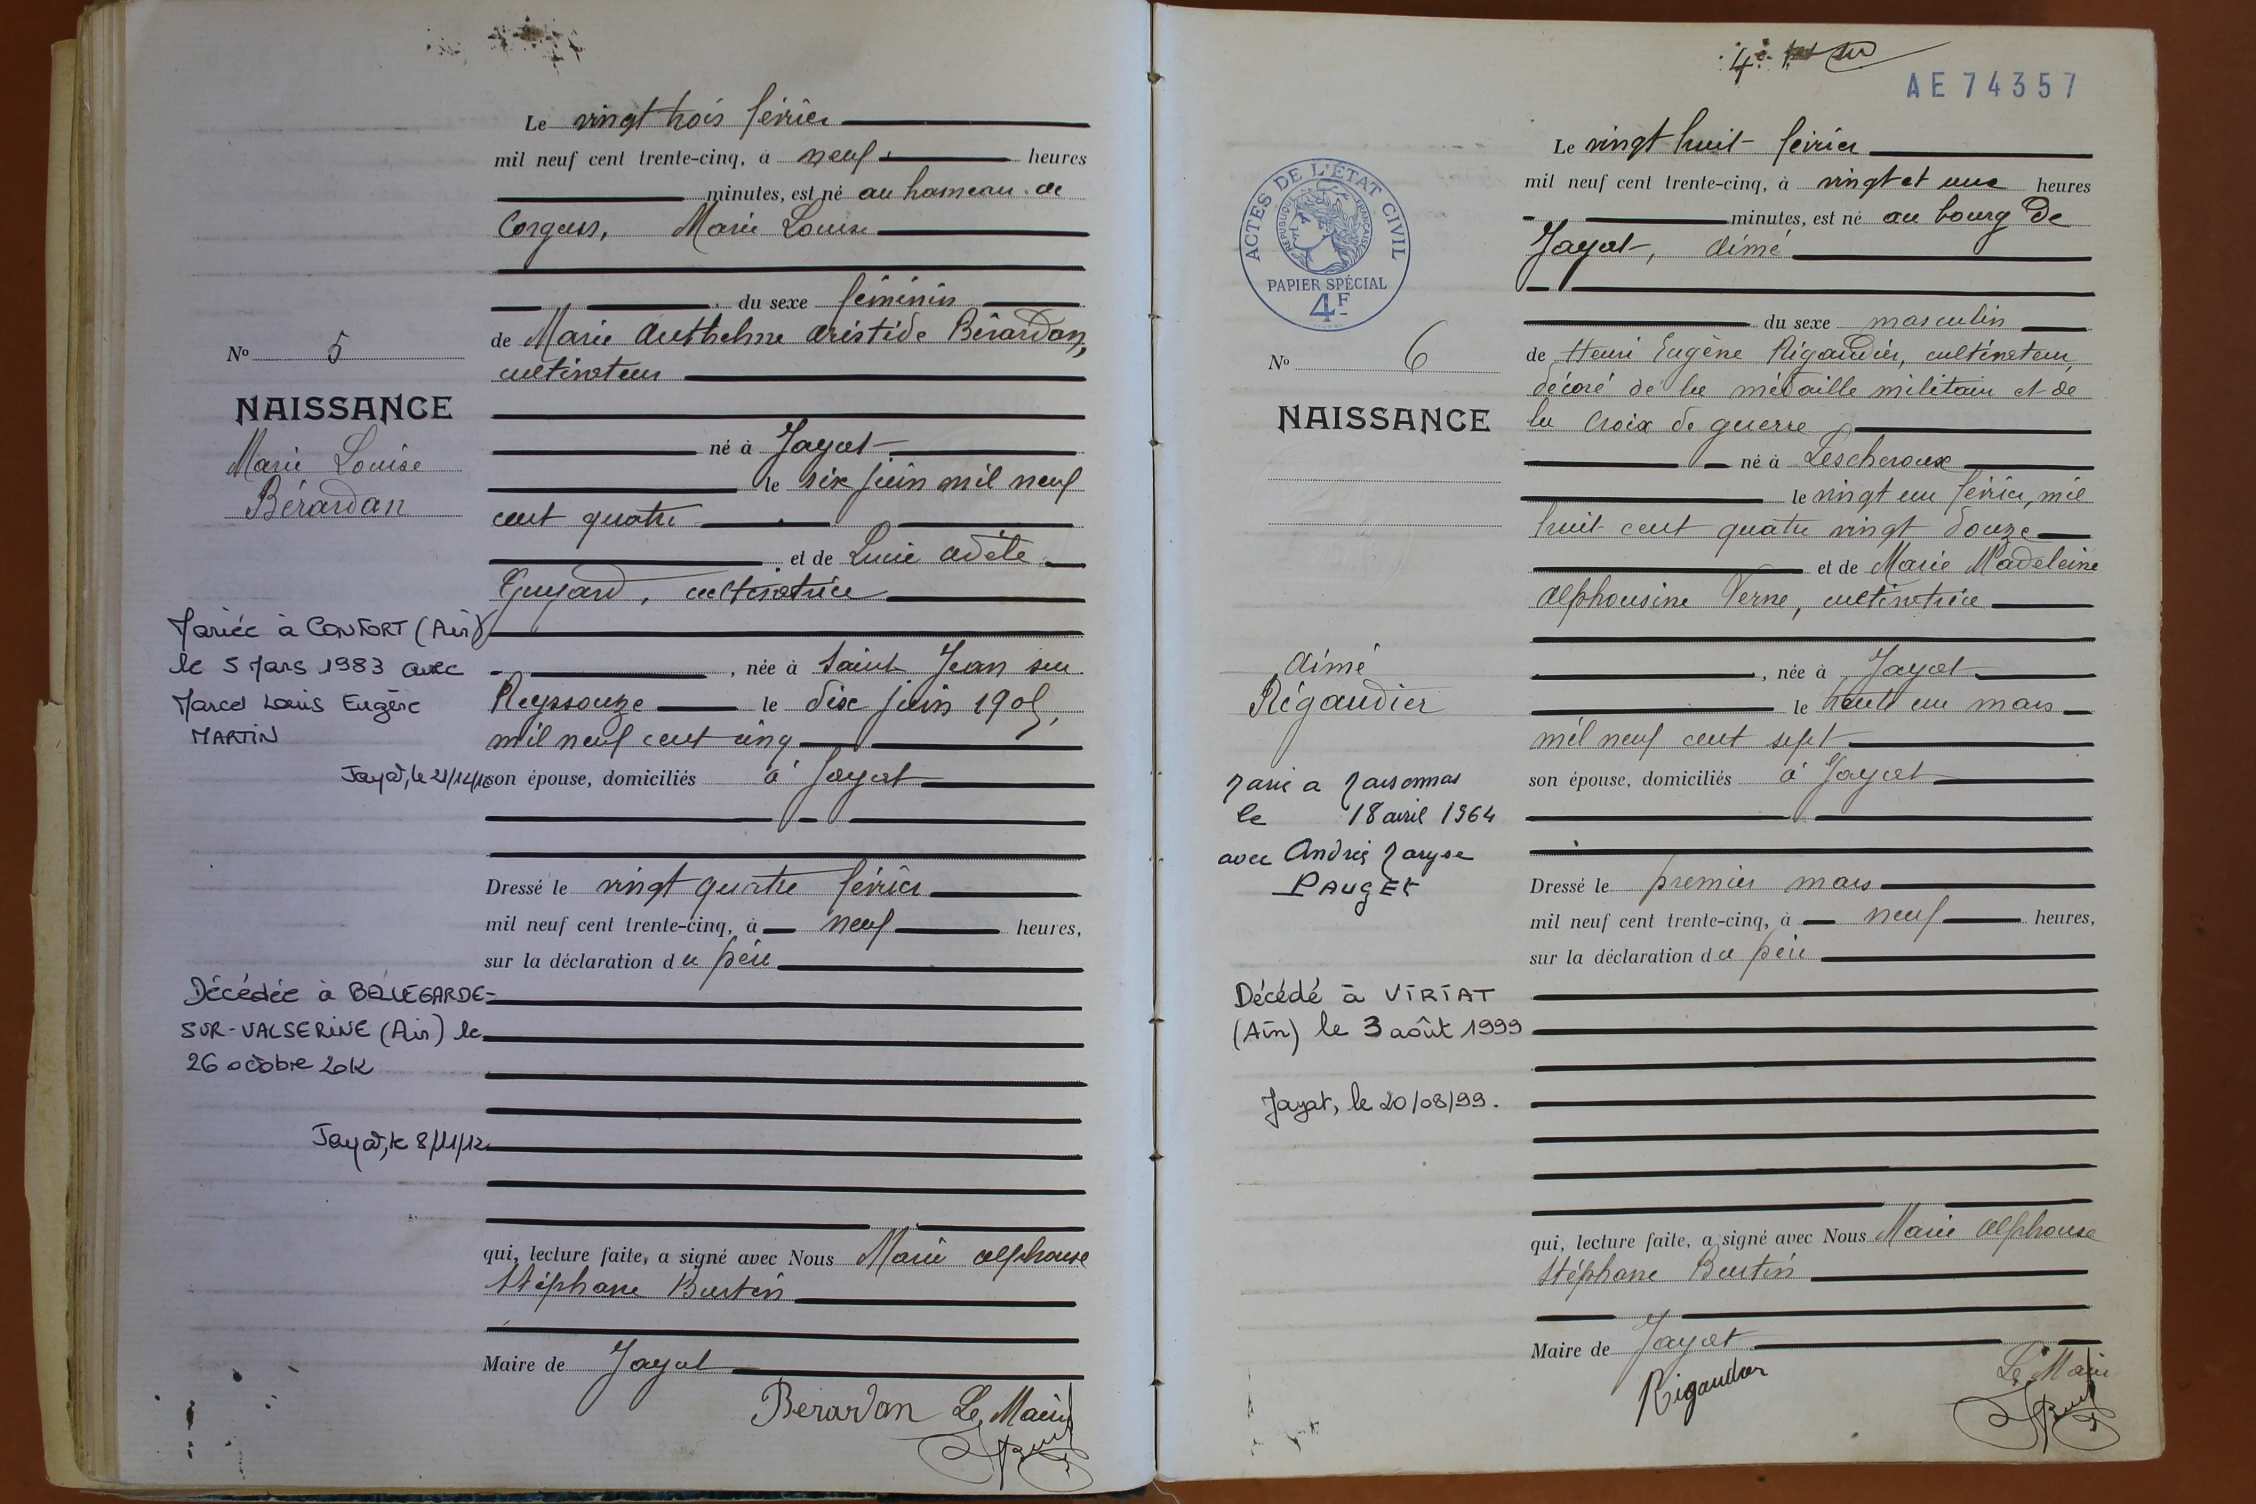 Le vingt trois février
mil neuf cent trente-cinq, à neuf heures
minutes, est né au hameau de
Marie Louise
du sexe féminin
de Marie Anthelme Aristide Bérardan,
cultivateur
né à Jayat
le six juin mil neuf
cent quatre
et de Lucie Adèle
Guyard, cultivatrice
, née à Saint Jean sur
Reyssouze le dix juin 1905,
mil neuf cent cinq
son épouse, domiciliés à Jayat
Dressé le vingt quatre février
mil neuf cent trente-cinq, à neuf heures,
sur la déclaration du père
qui, lecture faite, a signé avec Nous Marie Alphonse
Stéphane Burtin
Maire de Jayat
Bérardan Le Maire
No 5
NAISSANCE
Marie Louise
Bérardan
Mariée à CONFORT (Ain)
le 5 Mars 1983 avec
Marcel Louis Eugène
MARTIN
Jayat, le
Décédée à BELLEGARDE-
SUR-VALSERINE (Ain) le
26 octobre 2012
Jayat, le 8/11/12
AE 74357
Le vingt huit février
mil neuf cent trente-cinq, à vingt et une heures
minutes, est né au bourg de
Jayat, Aimé
du sexe masculin
de Henri Eugène Rigaudier, cultivateur,
décoré de la médaille militaire et de
la croix de guerre
né à Lescheroux
le vingt un février, mil
huit cent quatre vingt douze
et de Marie Madeleine
Alphonsine Verne, cultivatrice
, née à Jayat
le trente un mars
mil neuf cent sept
son épouse, domiciliés à Jayat
Dressé le premier mars
mil neuf cent trente-cinq, à neuf heures,
sur la déclaration du père
qui, lecture faite, a signé avec Nous Marie Alphonse
Stéphane Burtin
Maire de Jayat
Rigaudier Le Maire
ACTES DE L'ÉTAT CIVIL
RÉPUBLIQUE FRANÇAISE
PAPIER SPÉCIAL
4F
No 6
NAISSANCE
Aimé
Rigaudier
Marié à Marsonnas
le 18 avril 1964
avec Andrée Maryse
PAUGET
Décédé à VIRIAT
(Ain) le 3 août 1999
Jayat, le 20/08/99.